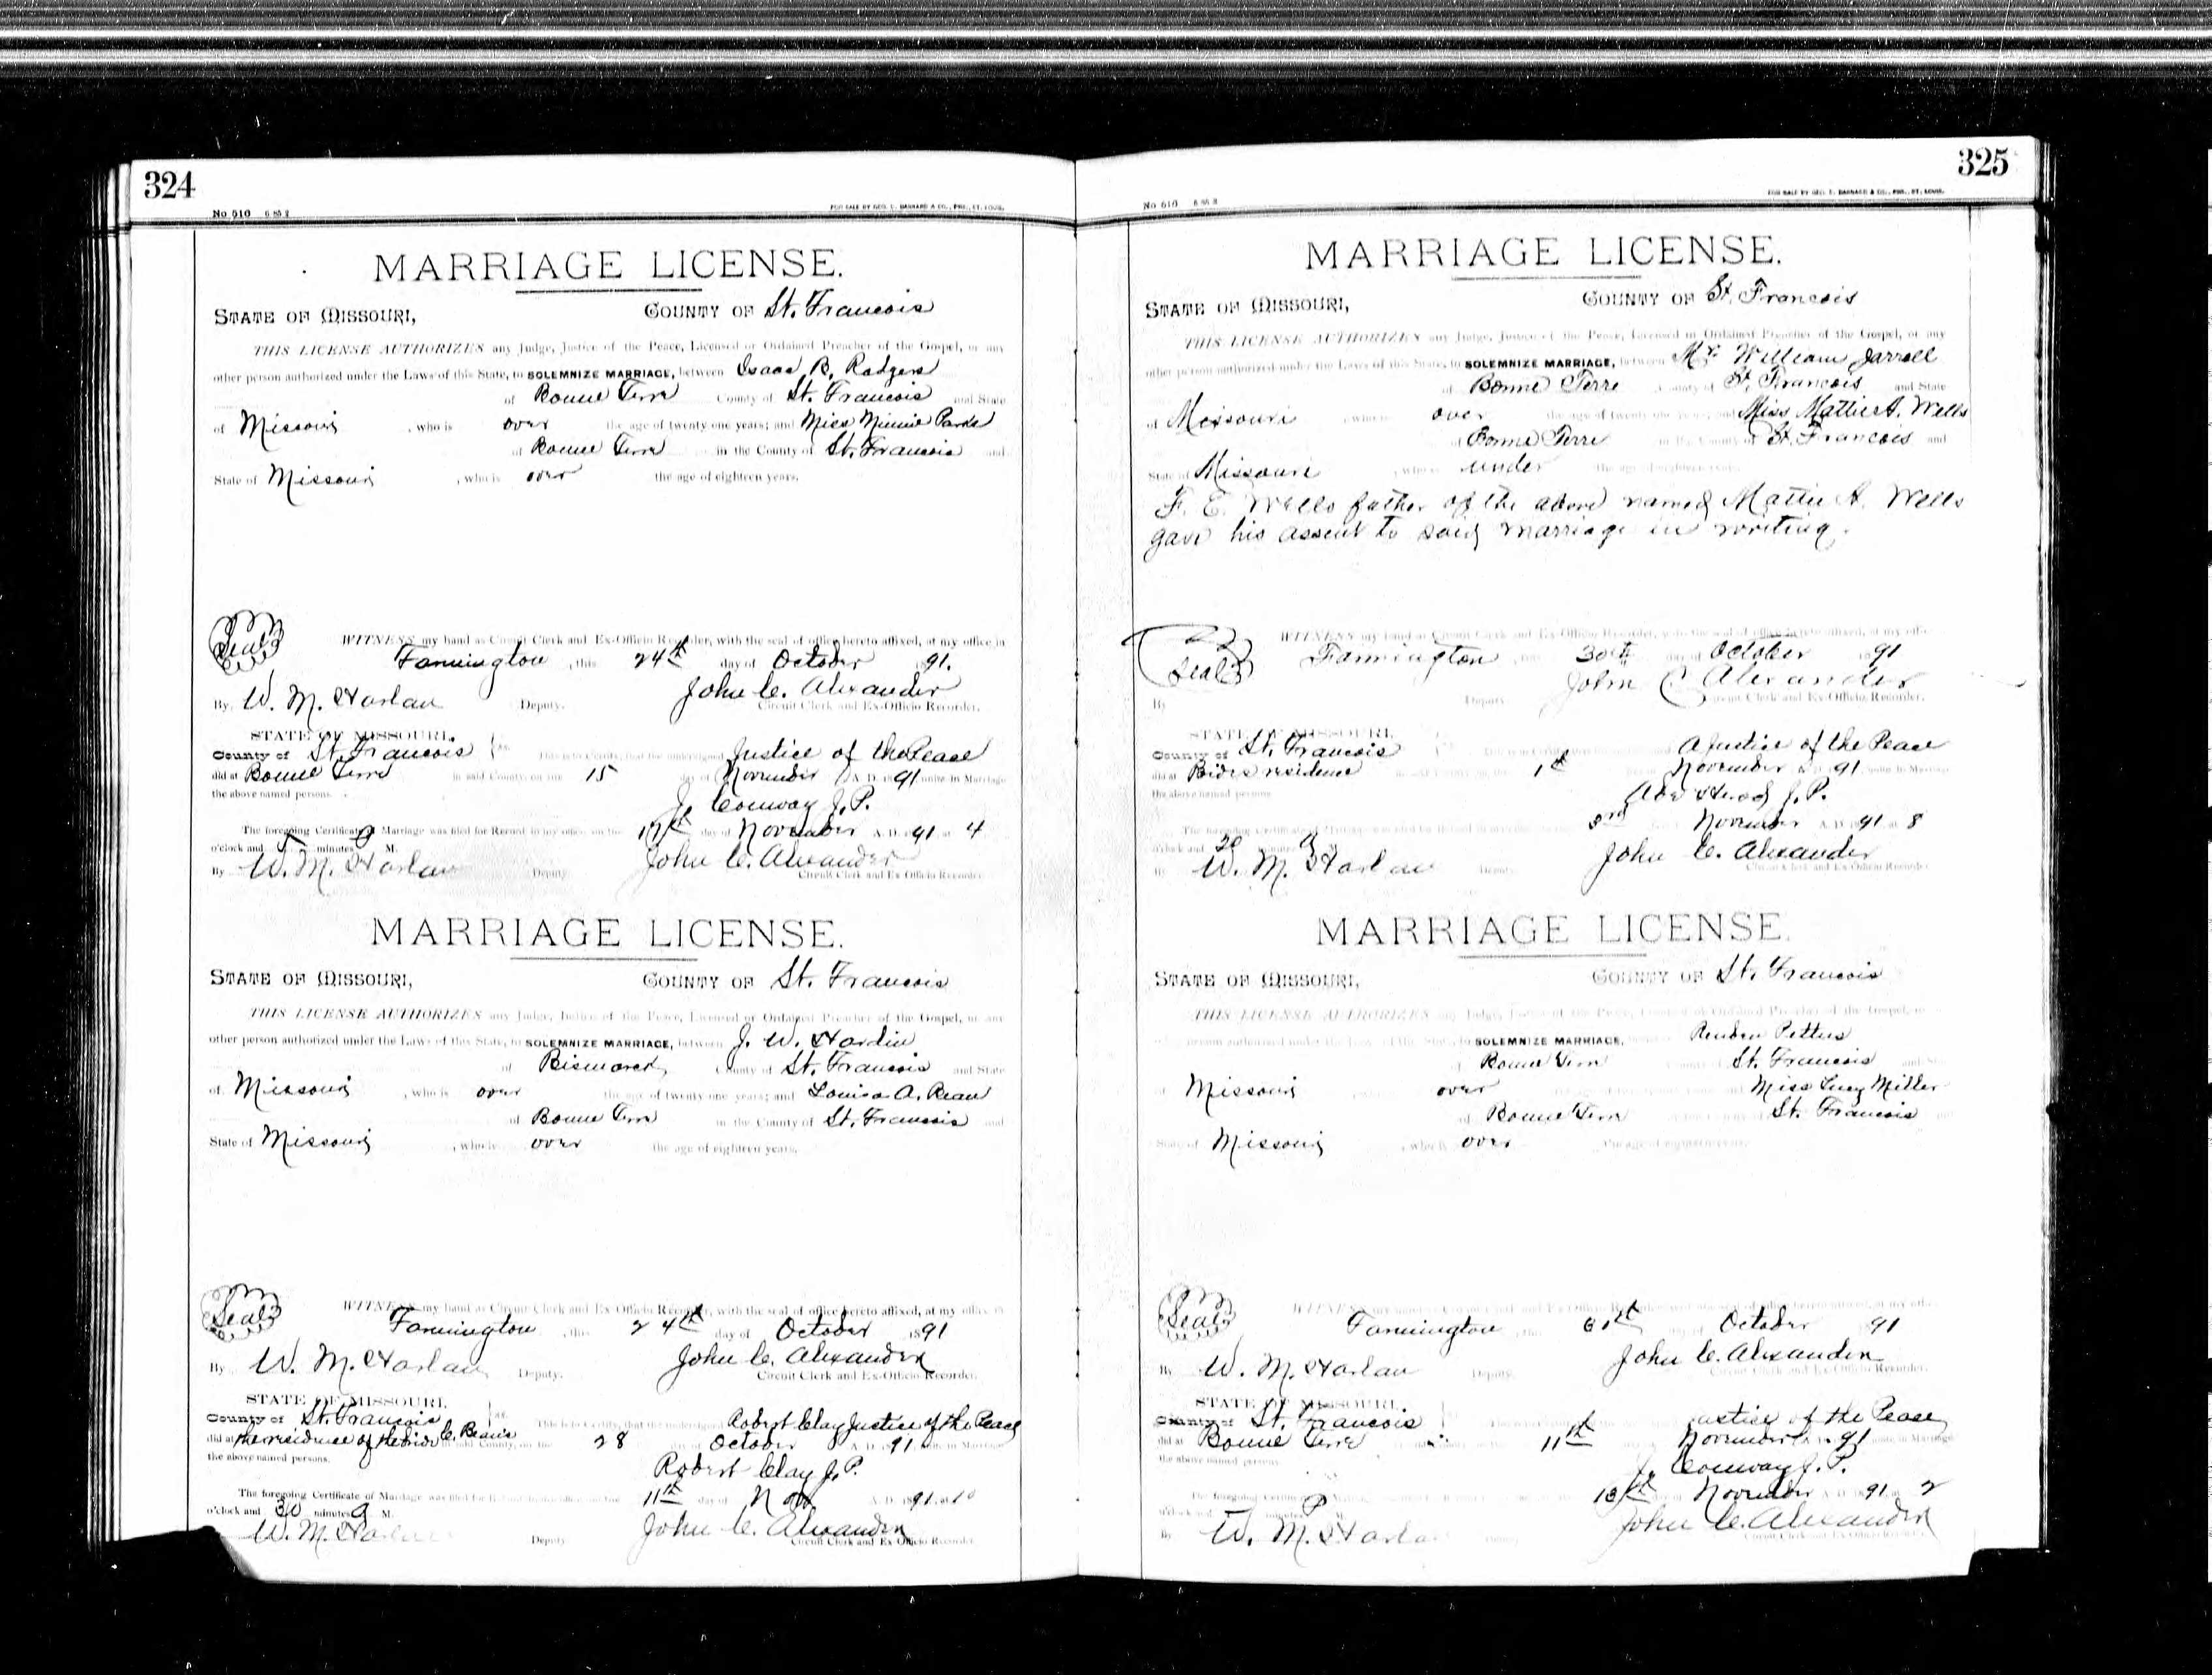 324
No 510 6 85 2
FOR SALE BY GEO. D. BARNARD & CO., PRS., ST. LOUIS.
MARRIAGE LICENSE.
STATE OF MISSOURI, COUNTY OF St. Francois
THIS LICENSE AUTHORIZES any Judge, Justice of the Peace, Licensed or Ordained Preacher of the Gospel, or any
other person authorized under the Laws of this State, to SOLEMNIZE MARRIAGE, between Isaac B. Rodgers
of Bonne Terre County of St. Francois and State
of Missouri, who is over the age of twenty-one years; and Miss Minnie Parks
of Bonne Terre in the County of St. Francois and
State of Missouri, who is over the age of eighteen years.
Seal WITNESS my hand as Circuit Clerk and Ex-Officio Recorder, with the seal of office hereto affixed, at my office in
Farmington, this 24th day of October 1891.
John C. Alexander
By W. M. Harlan Deputy. Circuit Clerk and Ex-Officio Recorder.
STATE OF MISSOURI,
County of St. Francois ss. This is to Certify, that the undersigned Justice of the Peace
did at Bonne Terre in said County, on the 15 day of November A. D. 1891 unite in Marriage
the above named persons.
J. Conway J. P.
The foregoing Certificate of Marriage was filed for Record in my office on the 17th day of November A. D. 1891 at 4
o'clock and 5 minutes P M.
John C. Alexander
By W. M. Harlan Deputy Circuit Clerk and Ex-Officio Recorder
MARRIAGE LICENSE.
STATE OF MISSOURI, COUNTY OF St. Francois
THIS LICENSE AUTHORIZES any Judge, Justice of the Peace, Licensed or Ordained Preacher of the Gospel, or any
other person authorized under the Laws of this State, to SOLEMNIZE MARRIAGE, between J. W. Hardin
of Bismarck County of St. Francois and State
of Missouri, who is over the age of twenty-one years; and Louisa A. Bean
of Bonne Terre in the County of St. Francois and
State of Missouri, who is over the age of eighteen years.
Seal WITNESS my hand as Circuit Clerk and Ex-Officio Recorder, with the seal of office hereto affixed, at my office in
Farmington, this 24th day of October 1891
John C. Alexander
By W. M. Harlan Deputy. Circuit Clerk and Ex-Officio Recorder.
STATE OF MISSOURI,
County of St. Francois ss. This is to Certify, that the undersigned Robert Clay Justice of the Peace
did at the residence of C. Bean's in said County, on the 28 day of October A. D. 1891 unite in Marriage
the above named persons.
Robert Clay J. P.
The foregoing Certificate of Marriage was filed for Record in my office on the 11th day of Nov A. D. 1891 at 10
o'clock and 30 minutes a M.
John C. Alexander
W. M. Harlan Deputy Circuit Clerk and Ex-Officio Recorder
325
No 510 6 85 2
FOR SALE BY GEO. D. BARNARD & CO., PRS., ST. LOUIS.
MARRIAGE LICENSE.
STATE OF MISSOURI, COUNTY OF St. Francois
THIS LICENSE AUTHORIZES any Judge, Justice of the Peace, Licensed or Ordained Preacher of the Gospel, or any
other person authorized under the Laws of this State, to SOLEMNIZE MARRIAGE, between Mr. William Jarrell
of Bonne Terre County of St. Francois and State
of Missouri, who is over the age of twenty-one years; and Miss Mattie A. Wells
of Bonne Terre in the County of St. Francois and
State of Missouri, who is under the age of eighteen years.
F. E. Wells father of the above named Mattie A. Wells
gave his assent to said marriage in writing.
Seal WITNESS my hand as Circuit Clerk and Ex-Officio Recorder, with the seal of office hereto affixed, at my office
Farmington, this 30th day of October 1891
John C Alexander
By Deputy. Circuit Clerk and Ex-Officio Recorder.
STATE OF MISSOURI,
County of St. Francois A Justice of the Peace
did at residence 1st November A. D. 1891 unite in Marriage
the above named persons.
Abe Head J. P.
The foregoing Certificate of Marriage was filed for Record in my office on the 3rd November A. D. 1891 at 8
o'clock and 20 minutes a
John C. Alexander
By W. M. Harlan Deputy Circuit Clerk and Ex-Officio Recorder.
MARRIAGE LICENSE.
STATE OF MISSOURI, COUNTY OF St. Francois
THIS LICENSE AUTHORIZES any Judge, Justice of the Peace, Licensed or Ordained Preacher of the Gospel, or
other person authorized under the Laws of this State, to SOLEMNIZE MARRIAGE, between Reuben Pettus
of Bonne Terre St. Francois
of Missouri over and Miss Lucy Miller
of Bonne Terre St. Francois
State of Missouri, who is over the age of eighteen years.
Seal WITNESS my hand as Circuit Clerk and Ex-Officio Recorder
Farmington, this 31st October 1891
John C. Alexander
By W. M. Harlan Deputy Circuit Clerk and Ex-Officio Recorder.
STATE OF MISSOURI,
County of St. Francois Justice of the Peace
did at Bonne Terre 11th November 91 unite in Marriage
the above named persons.
J. Conway J. P.
The foregoing Certificate November A. D. 1891 2
o'clock and P
John C. Alexander
By W. M. Harla